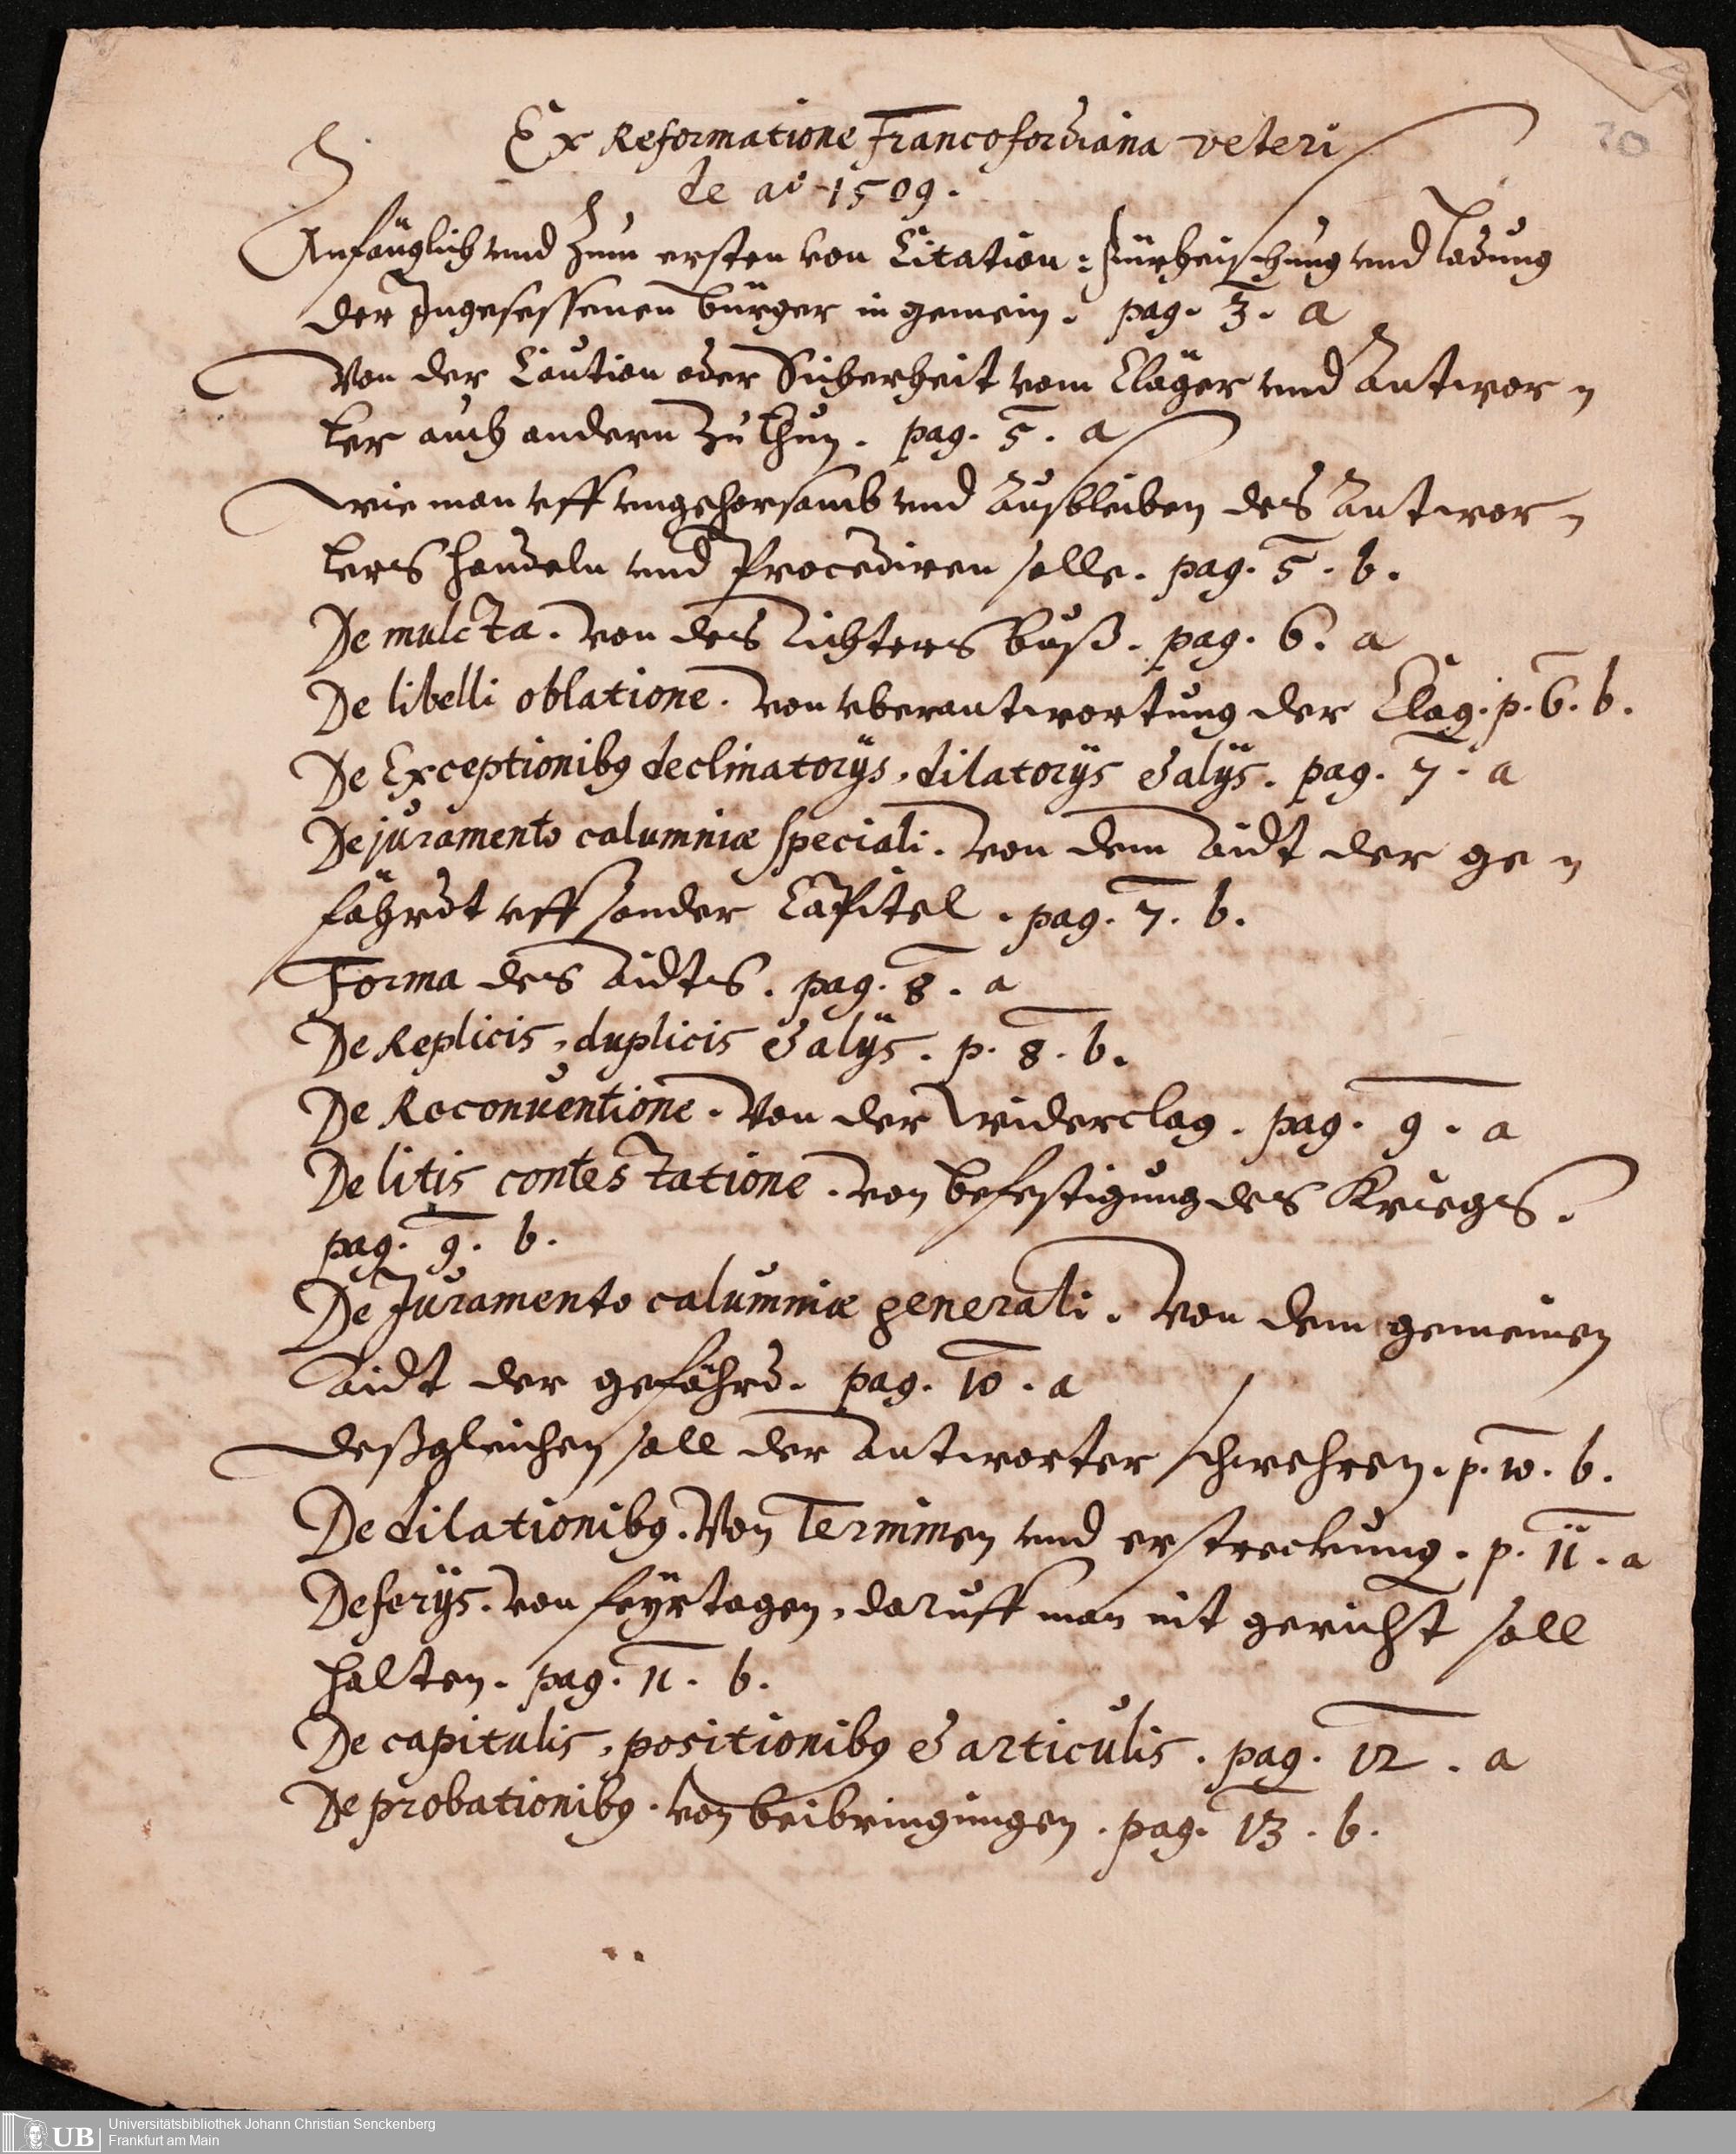 20
Ex Reformatione Francofordiana veteri
de ao 1509.
Anfänglich vnd Zum ersten von Citation: fürheischung vnd ladung
der Ingesessenen bürger in gemein. pag. 3. a
Von der Caution oder Sicherheit vom Cläger vnd Antwor⸗
ter auch andern Zu thun. pag. 5. a
Wie man vff vngehorsamb vnd Ausbleiben des Antwor⸗
ters handeln vnd Procediren solle. pag. 5. b.
De mulcta. Von des Richters buß. pag. 6. a
De libelli oblatione. Von vberantwortung der Clag. p. 6. b.
De Exceptionibꝰ declinatorijs, dilatorijs & alijs. pag. 7. a
De juramento calumniæ speciali. Von dem Aidt der ge⸗
fährdt vff sonder Capitel. pag. 7. b.
Forma des Aidts. pag. 8. a
De Replicis, duplicis & alijs. p. 8. b.
De Reconventione. Von der Widerclag. pag. 9. a
De litis contestatione. Von befestigung des Kriegs.
pag. 9. b.
De Juramento calumniæ generali. Von dem gemeinen
Aidt der gefährd. pag. 10. a
deßgleichen soll der Antworter schwehren. p. 10. b.
De dilationibꝰ. Von Terminen vnd erstreckung. p. 11. a
De ferijs. Von feÿrtagen, daruff man nit gericht soll
halten. pag. 11. b.
De capitulis, positionibꝰ & articulis. pag. 12. a
De probationibꝰ. Von beibringungen. pag. 13. b.
UB
Universitätsbibliothek Johann Christian Senckenberg
Frankfurt am Main